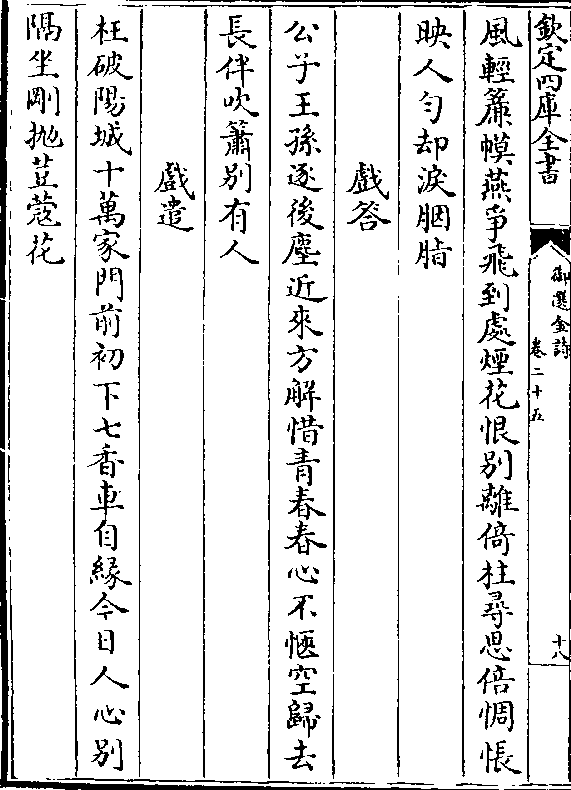 欽定四庫全書
御選金詩
卷二十五
十八
風輕簾幙燕爭飛到處煙花恨别離倚柱尋思倍惆悵
映人勻却淚胭脂
戲答
公子王孫逐後塵近來方解惜青春春心不愜空歸去
長伴吹簫别有人
戲遣
枉破陽城十萬家門前初下七香車自緣今日人心别
隅坐剛拋荳蔻花